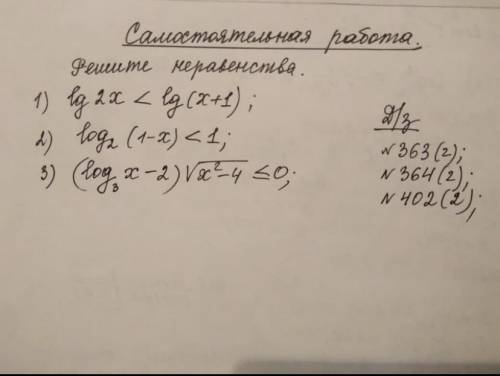 Самостоятельная работа.
Решите неравенства.
1) lg 2x < lg (x+1) ;
2) log₂ (1-x) < 1;
3) (log₃ x - 2) √(x²-4) ≤ 0;
Д/з
№ 363 (2);
№ 364 (2);
№ 402 (2);